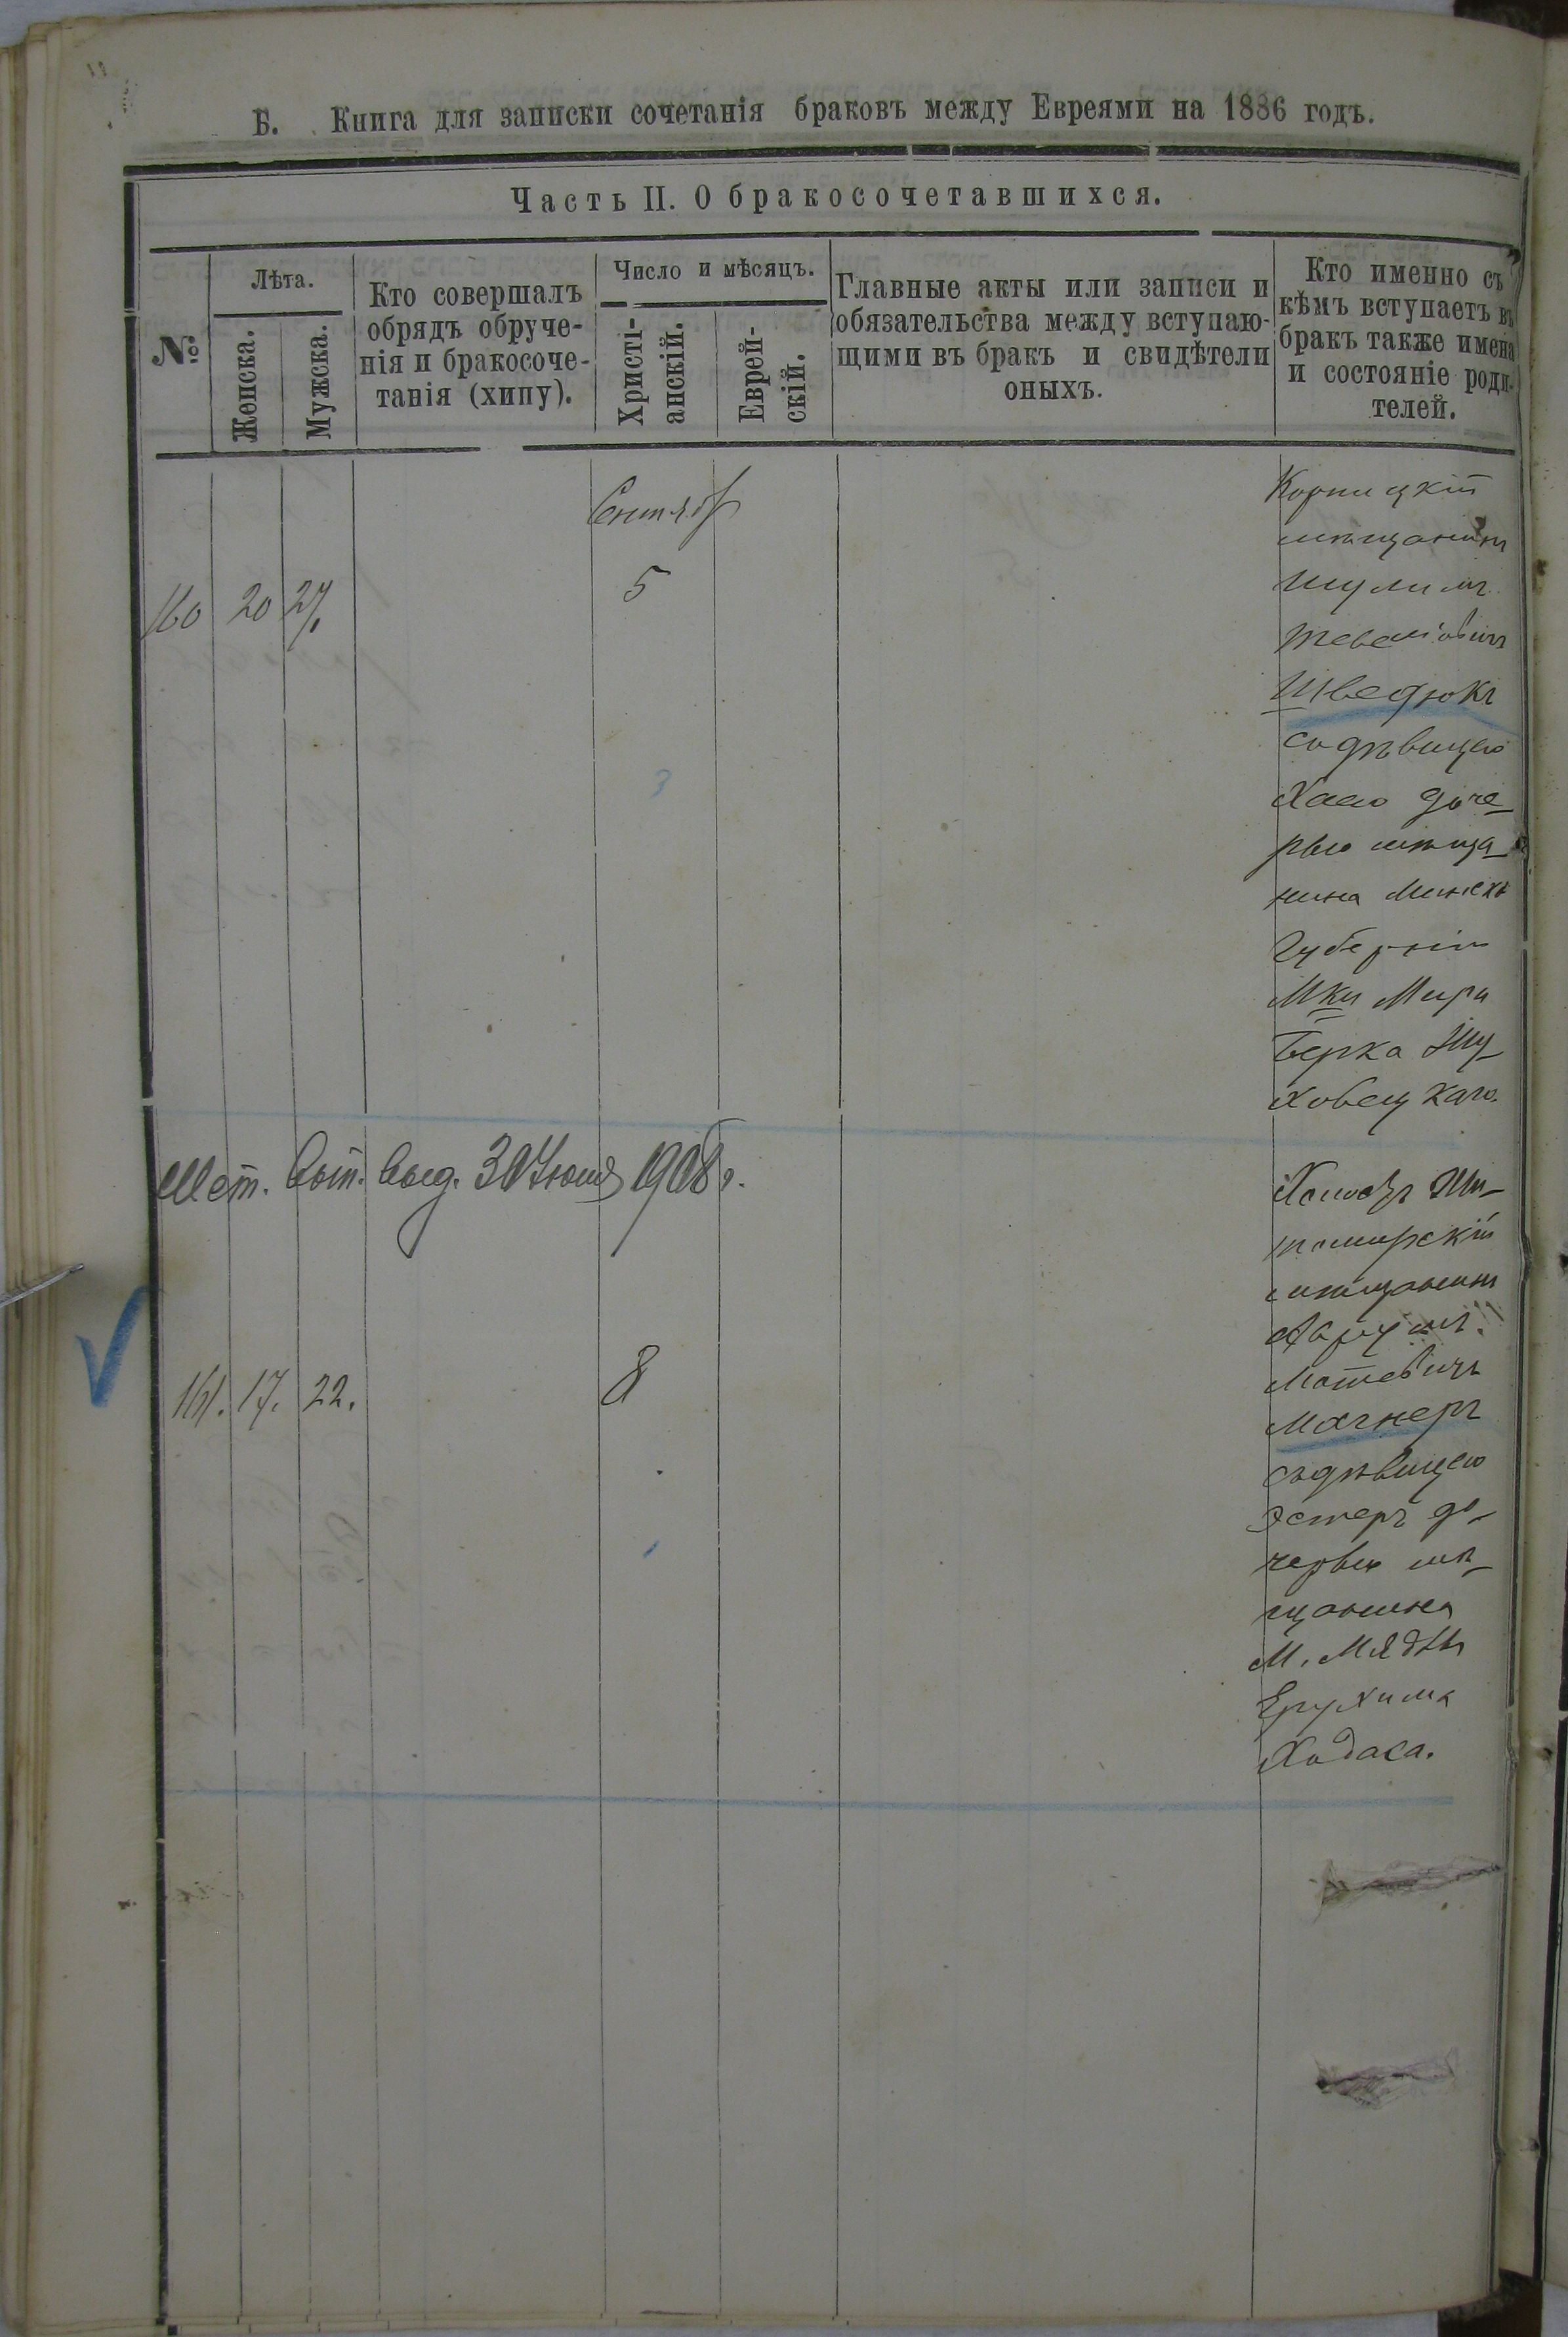 Б. Книга для записки сочетанія браковъ между Евреями на 1886 годъ.
Часть II. О бракосочетавшихся.
№
Лѣта.
Женска.
Мужска.
Кто совершалъ
обрядъ обруче-
нія и бракосоче-
танія (хипу).
Число и мѣсяцъ.
Христі-
анскій.
Еврей-
скій.
Главные акты или записи и
обязательства между вступаю-
щими въ бракъ и свидѣтели
оныхъ.
Кто именно съ
кѣмъ вступаетъ въ
бракъ также имена
и состояніе роди-
телей.
Сентяб
160 20 27. 5
Корницкій
мѣщанинъ
Шулимъ
Шведюкъ
съ дѣвицею
Хаею доче-
рью мѣща-
нина Минск
Губерніи
Мки Мира
Берка Шу-
ховецкаго.
Мет. вып. выд. 30 Іюня 1908 г.
161. 17. 22. 8
Жи-
томирскій
мѣщанинъ
Мотевичъ
Магнеръ
съ дѣвицею
Эстеръ до-
черью мѣ-
щанина
М. Мядлъ
Ерухима
Ходаса.